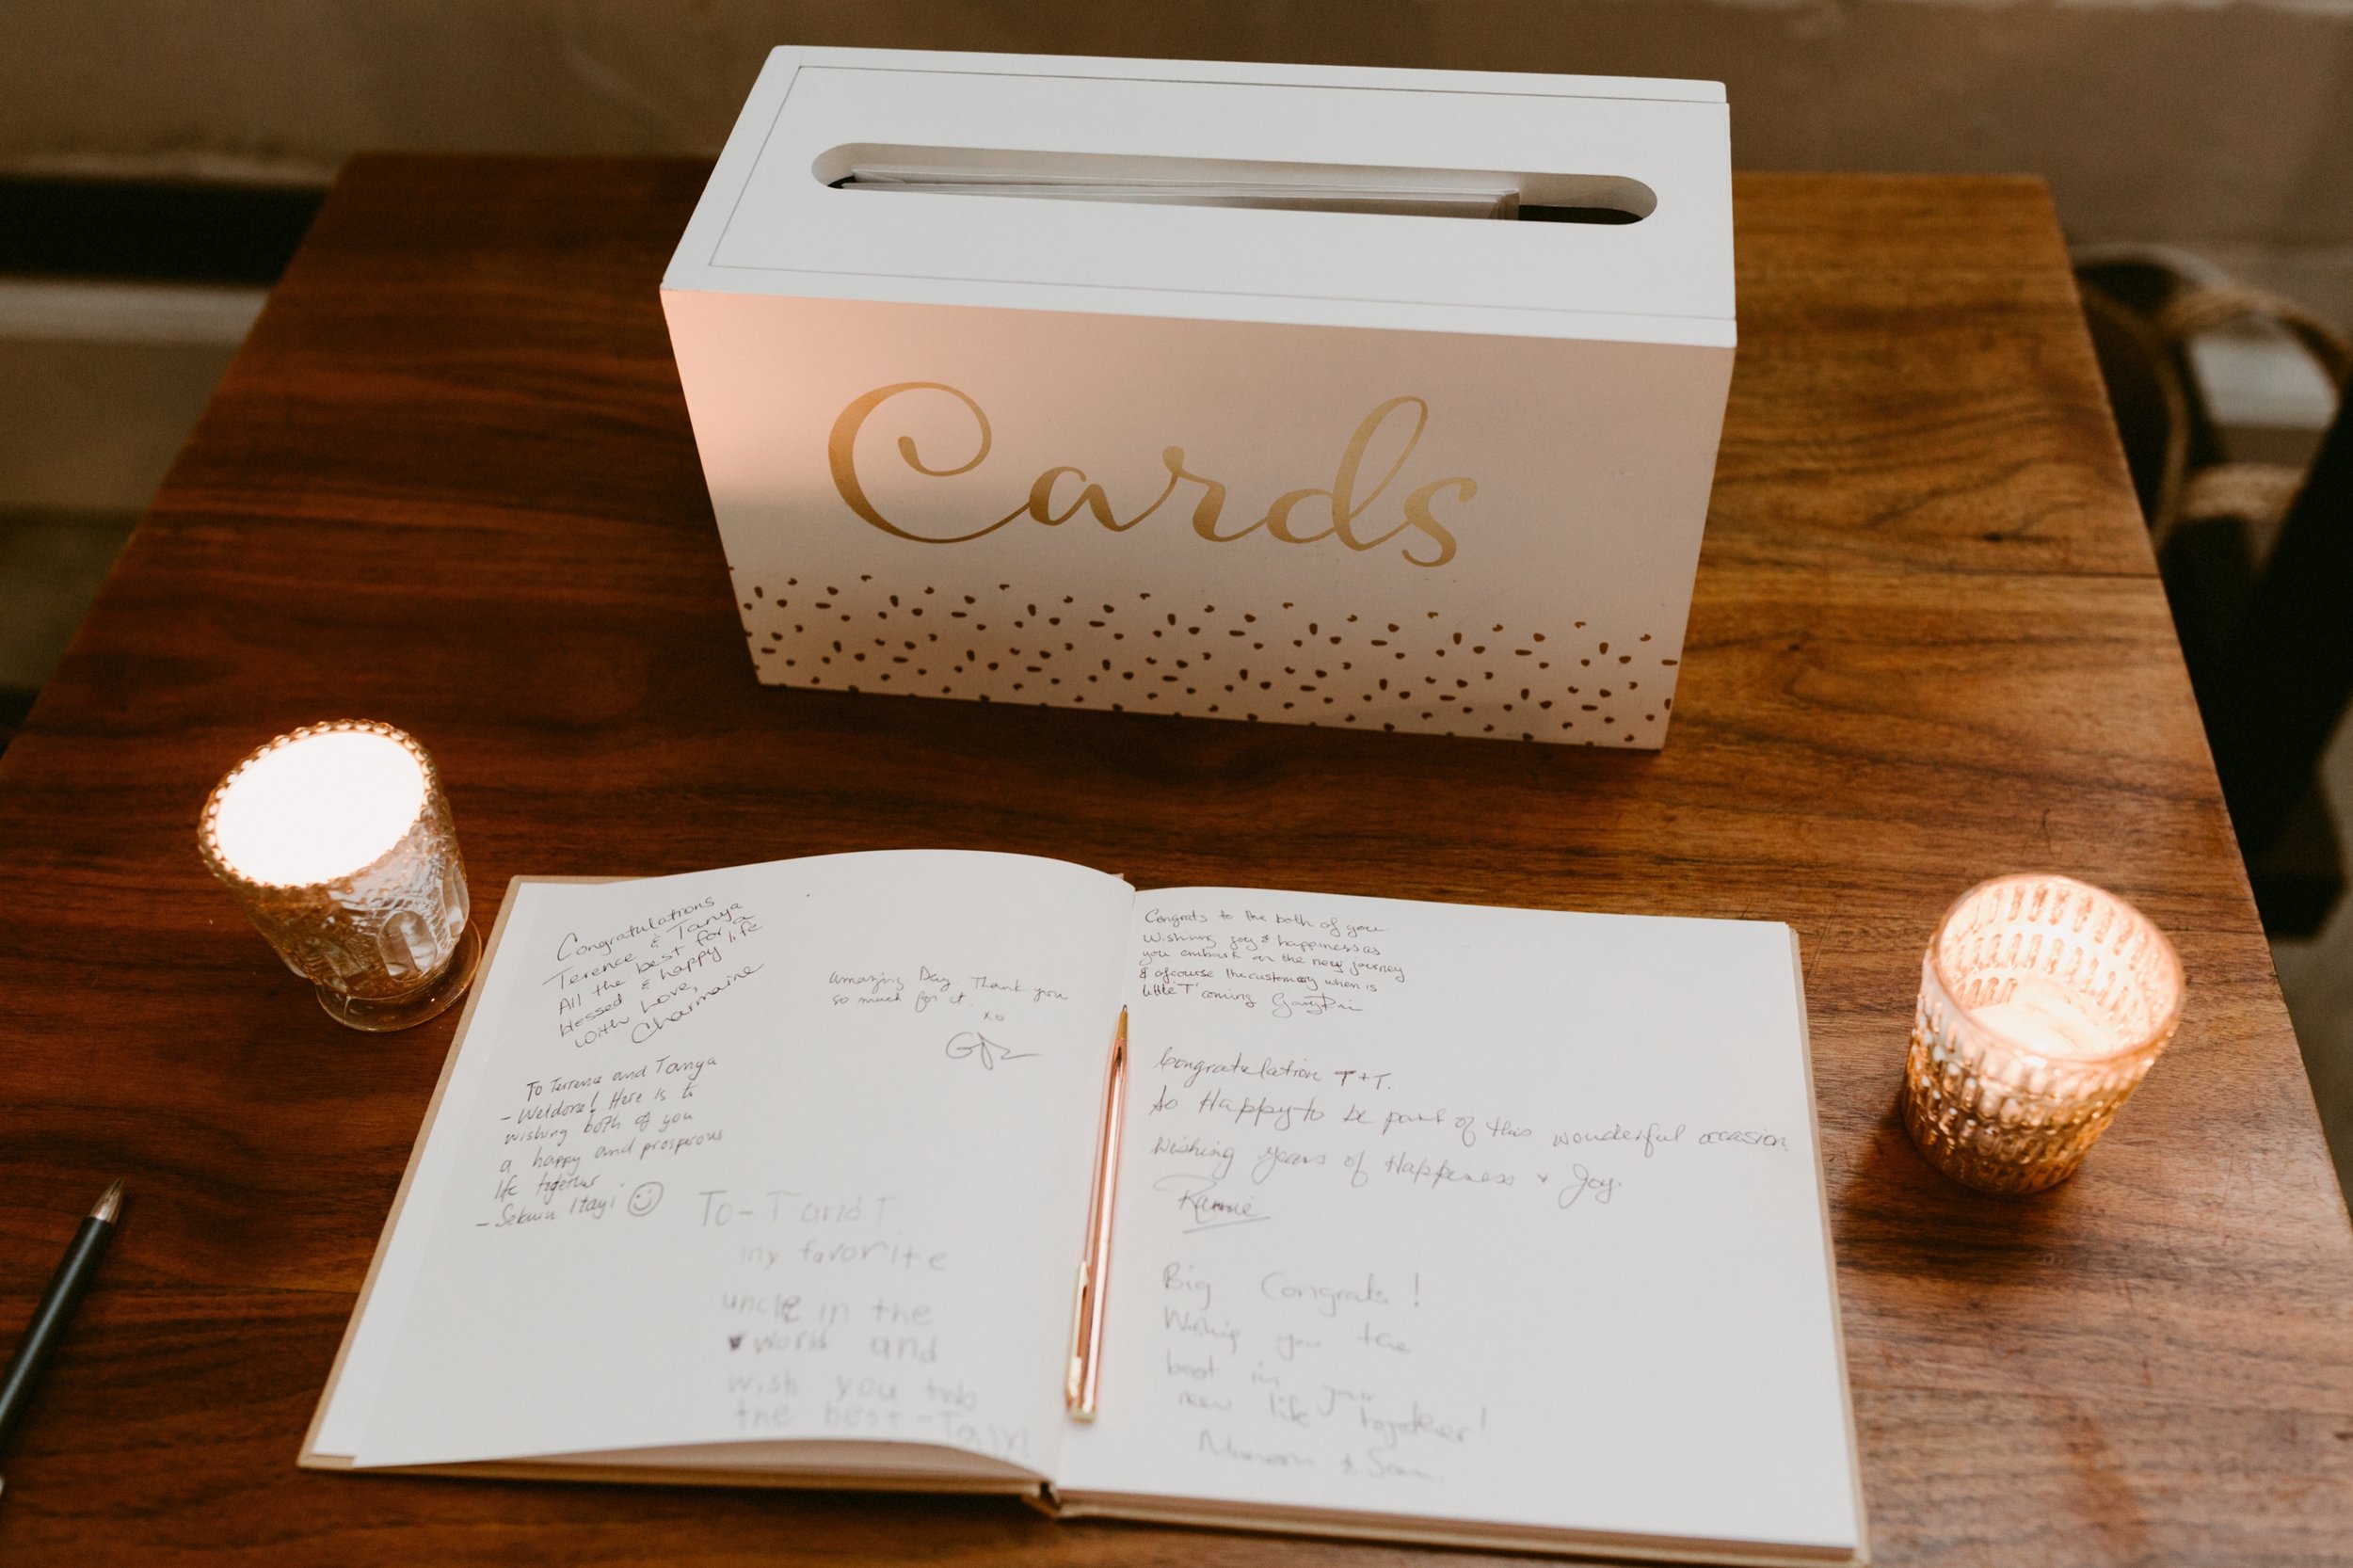 Cards
Congratulations
Terence & Tanya
All the best for a
blessed & happy life
with Love,
Charmaine
amazing Day Thank you
so much for it.
xo
To Terrence and Tanya
- Weldone! Here is to
wishing both of you
a happy and prosperous
life together
- Sekuru Itayi
To - T and T
my favorite
uncle in the
world and
wish you two
the best -
Congrats to the both of you
Wishing joy & happiness as
you embark on the new journey
& ofcourse the customary when is
little 'T' coming
Congratulation T+T.
So Happy to be part of this wonderful occasion.
Wishing years of Happiness + Joy.
Big Congrats!
Wishing you the
best in your
new life together!